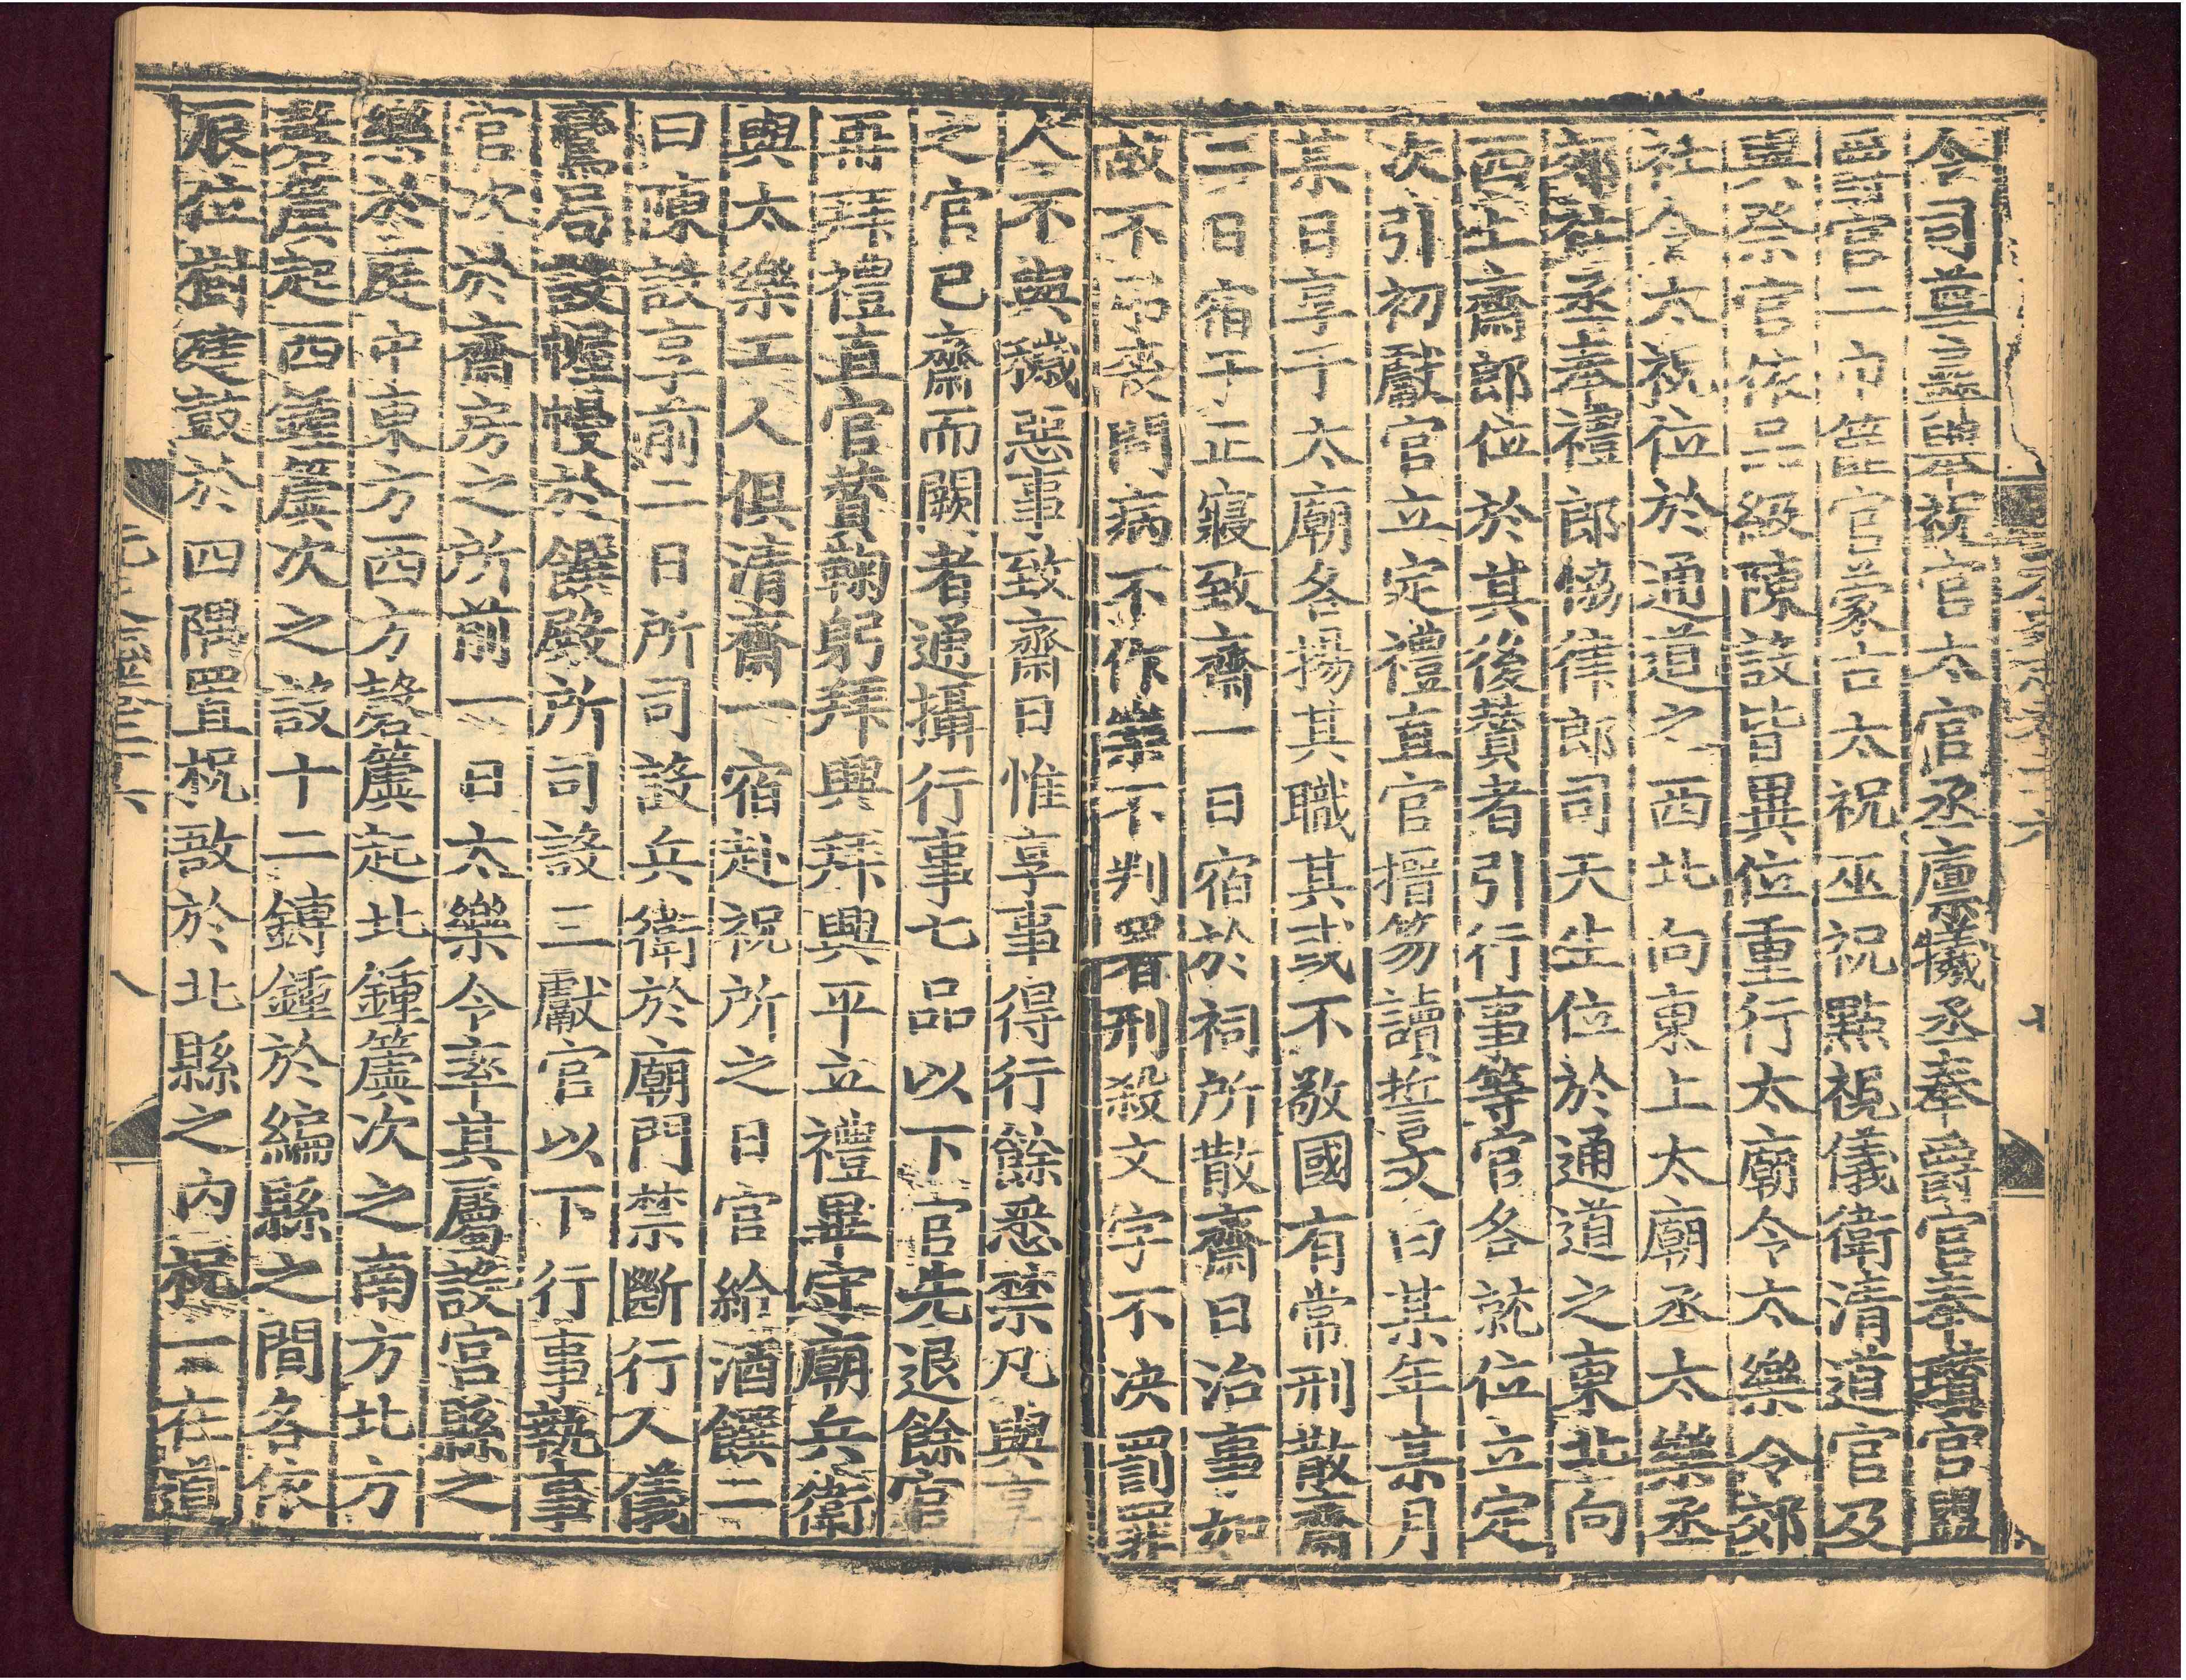 令司尊彝舉祝官太官丞廩犧丞奉爵官奉瓚官盥
爵官二巾篚官蒙古太祝巫祝點視儀衛清道官及
與祭官依品級陳設皆異位重行太廟令太樂令郊
社令太祝位於通道之西北向東上太廟丞太樂丞
郊社丞奉禮郎協律郎司天生位於通道之東北向
西上齋郎位於其後贊者引行事等官各就位立定
次引初獻官立定禮直官搢笏讀誓文曰某年某月
某日享于太廟各揚其職其或不敬國有常刑散齋
三日宿于正寢致齋一日宿於祠所散齋日治事如
故不弔喪問病不作樂不判署刑殺文字不决罰罪
人不與穢惡事致齋日惟享事得行餘悉禁凡與享
之官已齋而闕者通攝行事七品以下官先退餘官
再拜禮直官贊鞠躬拜興拜興平立禮畢守廟兵衛
與太樂工人俱清齋一宿赴祝所之日官給酒饌二
曰陳設享前二日所司設兵衛於廟門禁斷行人儀
鸞局設幄幔於饌殿所司設三獻官以下行事執事
官次於齋房之所前一日太樂令率其屬設宮縣之
樂於庭中東方西方磬簴起北鍾簴次之南方北方
磬簴起西鍾簴次之設十二鎛鍾於編縣之間各依
辰位樹建鼓於四隅置柷敔於北縣之內柷一在道
八